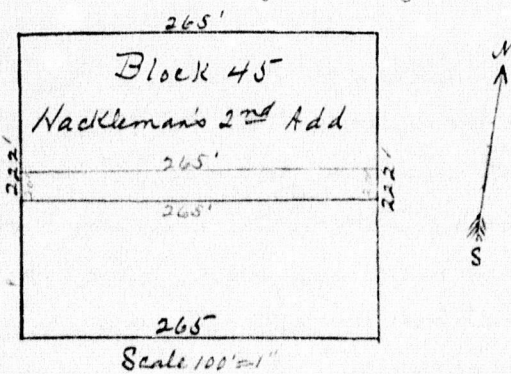 265'
Block 45
Hackleman's 2nd Add
265'
222'
222'
265'
265
Scale 100'=1"
N
S